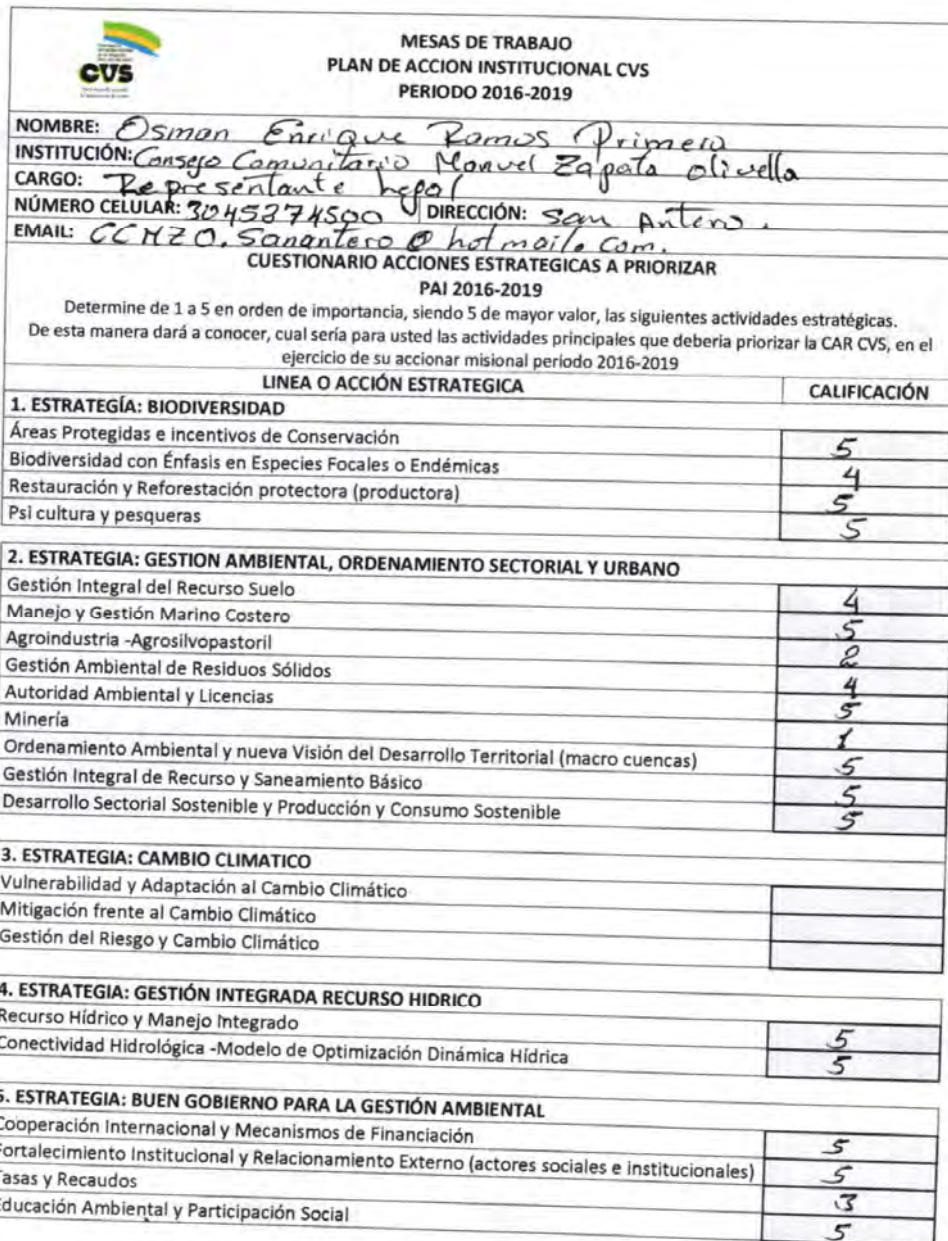 CVS
MESAS DE TRABAJO
PLAN DE ACCION INSTITUCIONAL CVS
PERIODO 2016-2019
NOMBRE: Osman Enrique Ramos Primero
INSTITUCIÓN: Consejo Comunitario Manuel Zapata olivella
CARGO: Representante legal
NÚMERO CELULAR: 3045274500 DIRECCIÓN: San Antero.
EMAIL: CCMZO.Sanantero@hotmail.com.
CUESTIONARIO ACCIONES ESTRATEGICAS A PRIORIZAR
PAI 2016-2019
Determine de 1 a 5 en orden de importancia, siendo 5 de mayor valor, las siguientes actividades estratégicas.
De esta manera dará a conocer, cual sería para usted las actividades principales que deberia priorizar la CAR CVS, en el
ejercicio de su accionar misional periodo 2016-2019
LINEA O ACCIÓN ESTRATEGICA CALIFICACIÓN
1. ESTRATEGÍA: BIODIVERSIDAD
Áreas Protegidas e incentivos de Conservación 5
Biodiversidad con Énfasis en Especies Focales o Endémicas 4
Restauración y Reforestación protectora (productora) 5
Psi cultura y pesqueras 5
2. ESTRATEGIA: GESTION AMBIENTAL, ORDENAMIENTO SECTORIAL Y URBANO
Gestión Integral del Recurso Suelo 4
Manejo y Gestión Marino Costero 5
Agroindustria -Agrosilvopastoril 2
Gestión Ambiental de Residuos Sólidos 4
Autoridad Ambiental y Licencias 5
Minería 1
Ordenamiento Ambiental y nueva Visión del Desarrollo Territorial (macro cuencas) 5
Gestión Integral de Recurso y Saneamiento Básico 5
Desarrollo Sectorial Sostenible y Producción y Consumo Sostenible 5
3. ESTRATEGIA: CAMBIO CLIMATICO
Vulnerabilidad y Adaptación al Cambio Climático
Mitigación frente al Cambio Climático
Gestión del Riesgo y Cambio Climático
4. ESTRATEGIA: GESTIÓN INTEGRADA RECURSO HIDRICO
Recurso Hídrico y Manejo Integrado 5
Conectividad Hidrológica -Modelo de Optimización Dinámica Hídrica 5
5. ESTRATEGIA: BUEN GOBIERNO PARA LA GESTIÓN AMBIENTAL
Cooperación Internacional y Mecanismos de Financiación 5
Fortalecimiento Institucional y Relacionamiento Externo (actores sociales e institucionales) 5
Tasas y Recaudos 3
Educación Ambiental y Participación Social 5